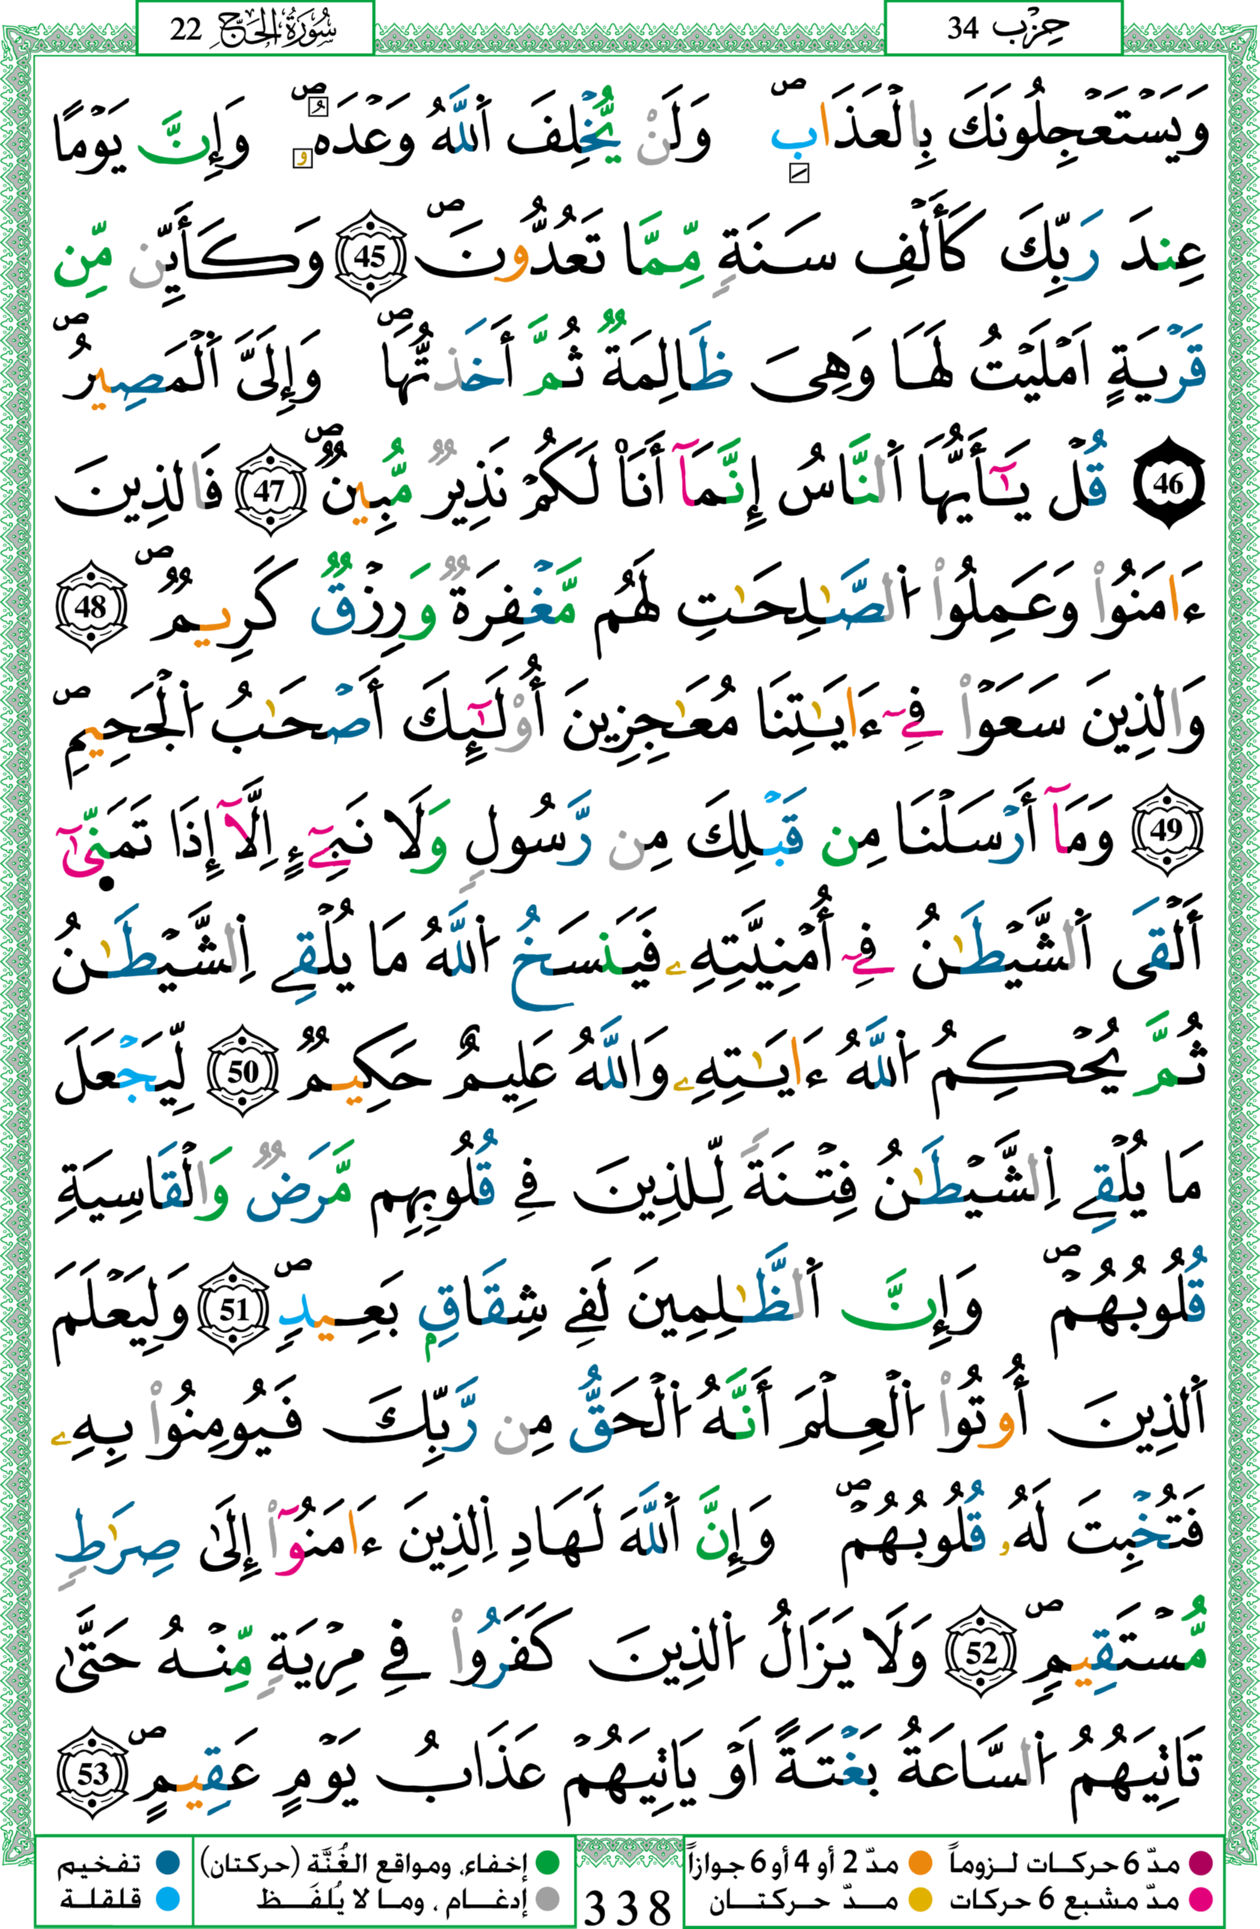 سُورَةُ الحَجِّ 22
حِزْب 34
وَيَسْتَعْجِلُونَكَ بِالْعَذَابِ ۖ وَلَنْ يُّخْلِفَ اَللَّهُ وَعْدَهُۥ ۖ وَإِنَّ يَوْمًا
عِندَ رَبِّكَ كَأَلْفِ سَنَةٍ مِّمَّا تَعُدُّونَ ۖ 45 وَكَأَيِّن مِّن
قَرْيَةٍ اَمْلَيْتُ لَهَا وَهِىَ ظَالِمَةٌ ثُمَّ أَخَذتُّهَا ۖ وَإِلَىَّ اَلْمَصِيرُ ۖ
46 قُلْ يَٰٓأَيُّهَا اَلنَّاسُ إِنَّمَآ أَنَا۠ لَكُمْ نَذِيرٌ مُّبِينٌ ۖ 47 فَالذِينَ
ءَامَنُوا۟ وَعَمِلُوا۟ اُلصَّٰلِحَٰتِ لَهُم مَّغْفِرَةٌ وَرِزْقٌ كَرِيمٌ ۖ 48
وَالذِينَ سَعَوْا۟ فِےٓ ءَايَٰتِنَا مُعَٰجِزِينَ أُوْلَٰٓئِكَ أَصْحَٰبُ اُلْجَحِيمِ ۖ
49 وَمَآ أَرْسَلْنَا مِن قَبْلِكَ مِن رَّسُولٍ وَلَا نَبِےٓءٍ اِلَّآ إِذَا تَمَنّ۪ىٰٓ
أَلْقَى اَلشَّيْطَٰنُ فِےٓ أُمْنِيَّتِهِۦ فَيَنسَخُ اُللَّهُ مَا يُلْقِے اِلشَّيْطَٰنُ
ثُمَّ يُحْكِمُ اُللَّهُ ءَايَٰتِهِۦ وَاللَّهُ عَلِيمٌ حَكِيمٌ 50 لِّيَجْعَلَ
مَا يُلْقِے اِلشَّيْطَٰنُ فِتْنَةً لِّلذِينَ فِے قُلُوبِهِم مَّرَضٌ وَالْقَاسِيَةِ
قُلُوبُهُمْ ۖ وَإِنَّ اَلظَّٰلِمِينَ لَفِے شِقَاقٍۢ بَعِيدٍ ۖ 51 وَلِيَعْلَمَ
اَلذِينَ أُوتُوا۟ اُلْعِلْمَ أَنَّهُ اُلْحَقُّ مِن رَّبِّكَ فَيُومِنُوا۟ بِهِۦ
فَتُخْبِتَ لَهُۥ قُلُوبُهُمْ ۖ وَإِنَّ اَللَّهَ لَهَادِ اِلذِينَ ءَامَنُوٓا۟ إِلَىٰ صِرَٰطٍ
مُّسْتَقِيمٍ ۖ 52 وَلَا يَزَالُ اُلذِينَ كَفَرُوا۟ فِے مِرْيَةٍ مِّنْهُ حَتَّىٰ
تَاتِيَهُمُ اُلسَّاعَةُ بَغْتَةً اَوْ يَاتِيَهُمْ عَذَابُ يَوْمٍ عَقِيمٍ ۖ 53
مدّ 6 حركات لـزوماً مدّ 2 أو 4 أو 6 جوازاً إخفاء، ومواقع الغُنَّة (حركتان) تفخيم
مدّ مشبع 6 حركات مـدّ حـركتـان إدغـام ، ومـا لا يُلفَـظ قلقلة
338